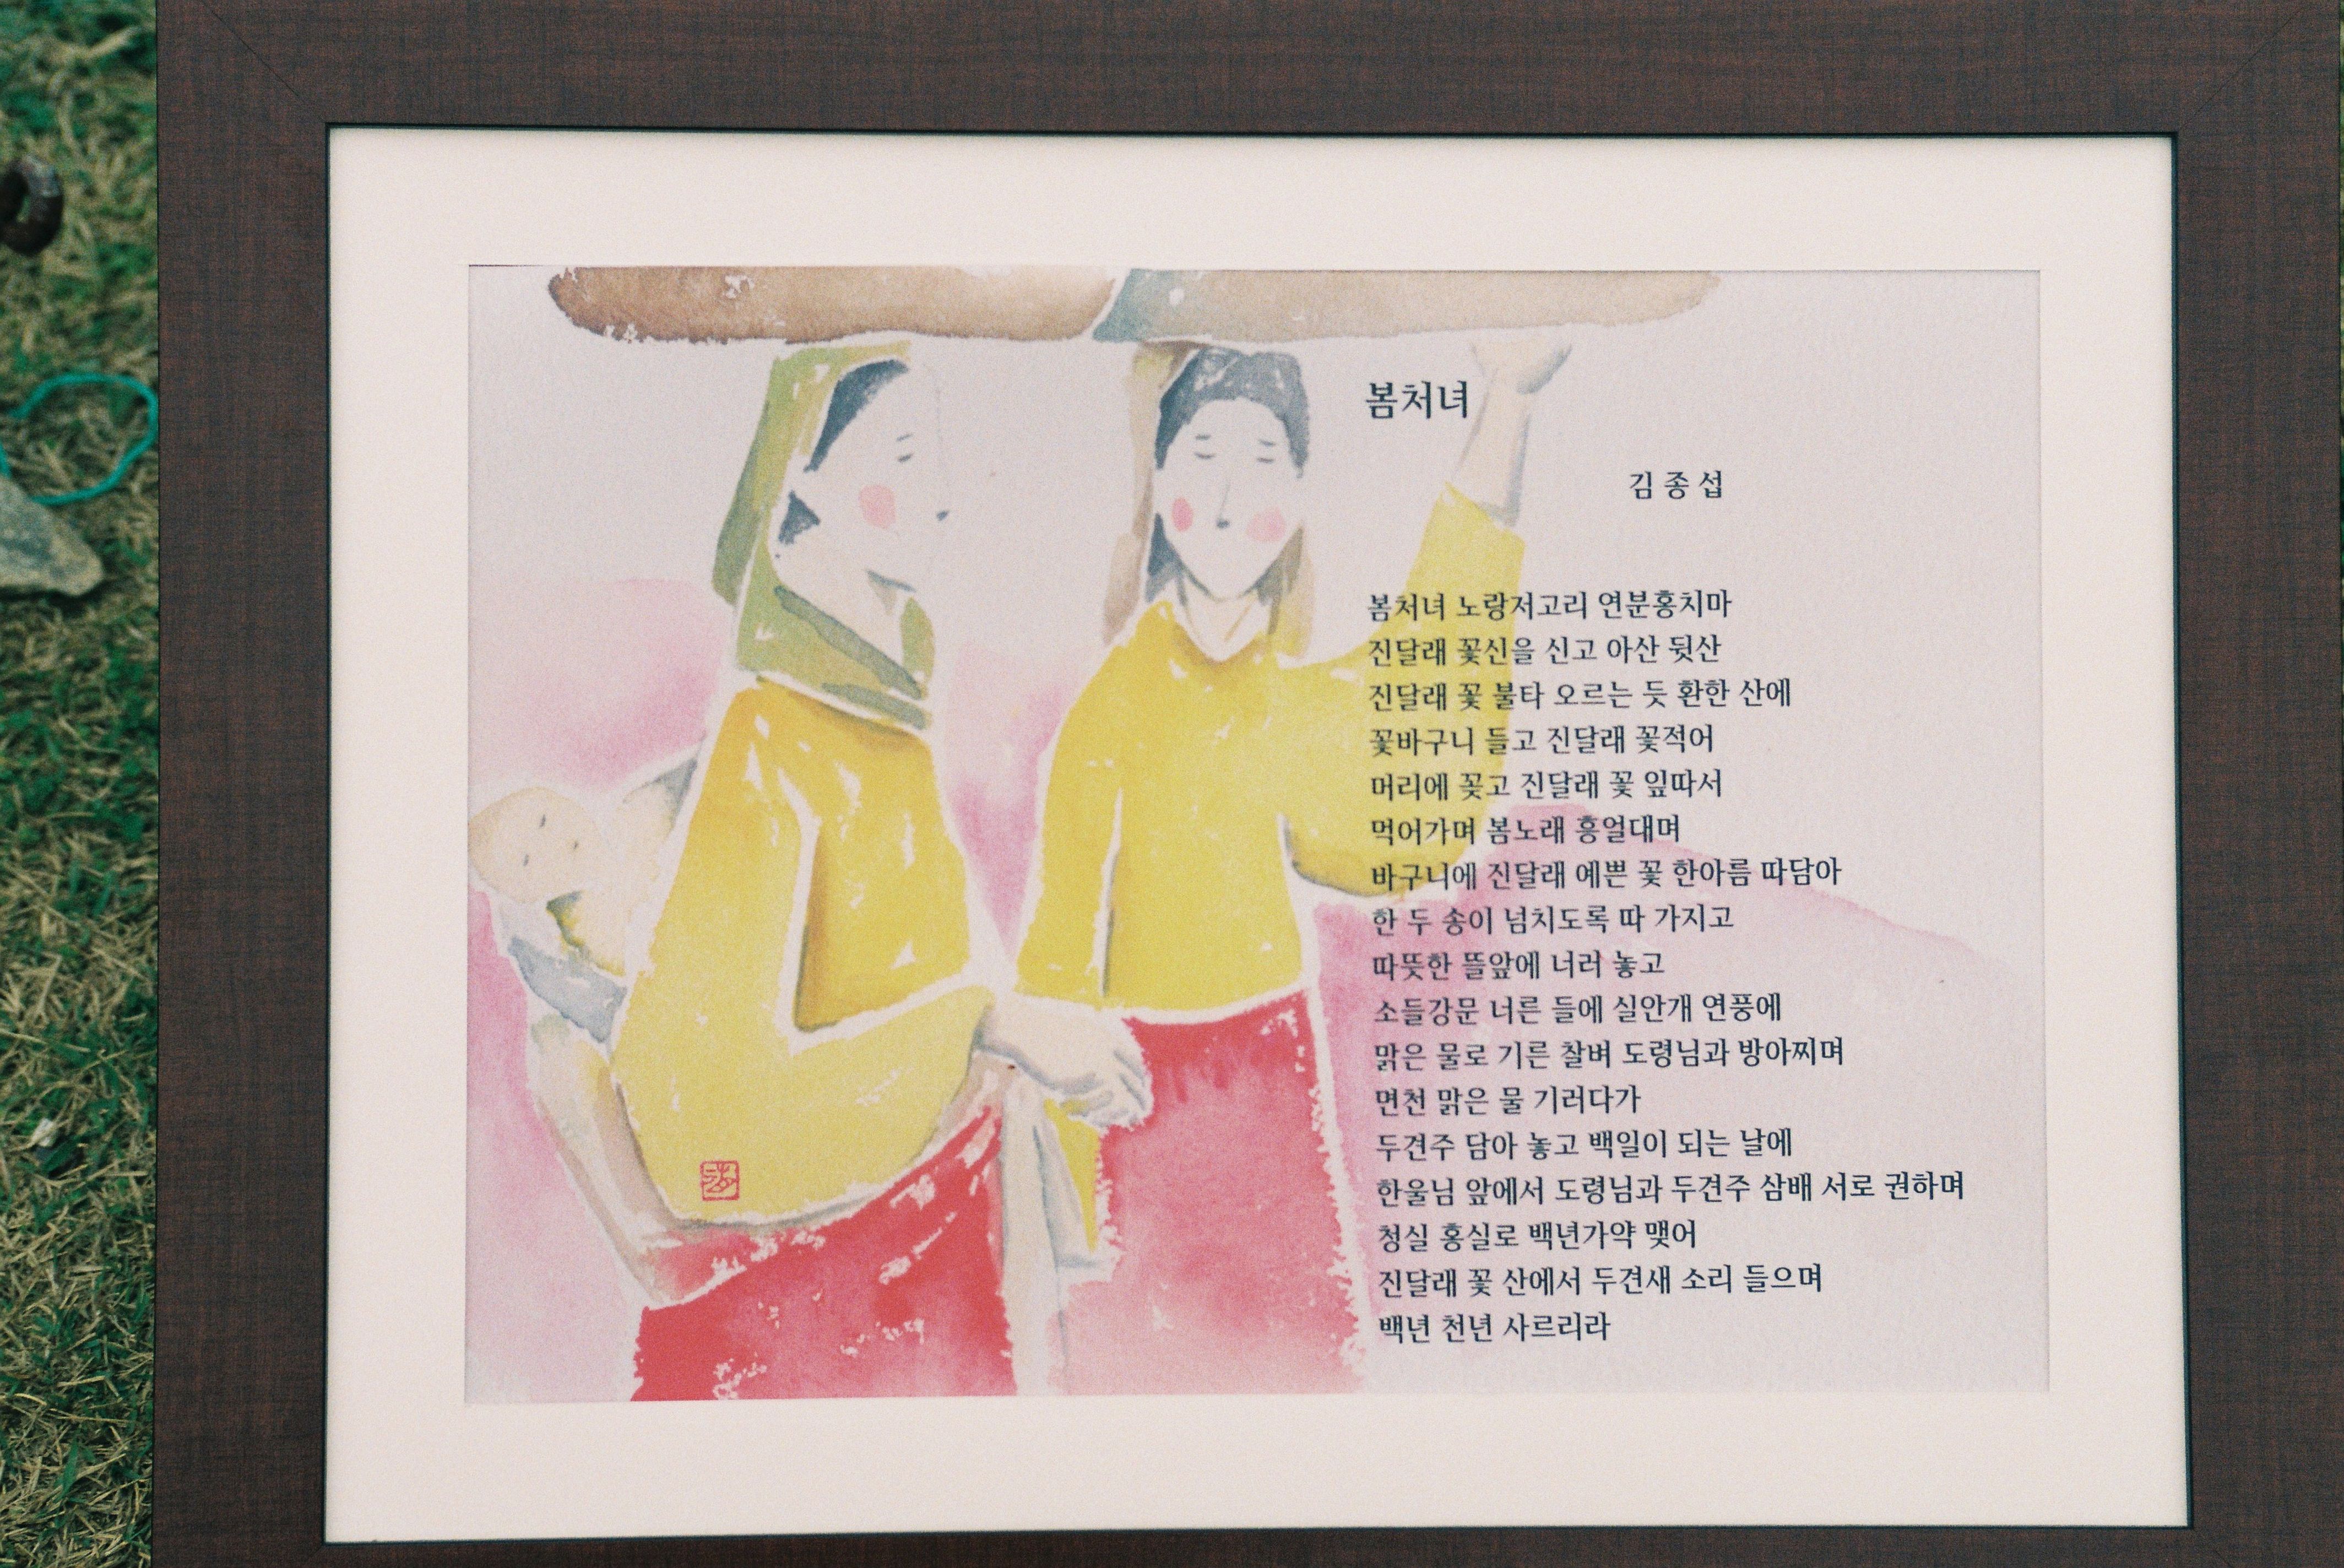 봄처녀
김종섭
봄처녀 노랑저고리 연분홍치마
진달래 꽃신을 신고 아산 뒷산
진달래 꽃 불타 오르는 듯 환한 산에
꽃바구니 들고 진달래 꽃적어
머리에 꽂고 진달래 꽃 잎따서
먹어가며 봄노래 흥얼대며
바구니에 진달래 예쁜 꽃 한아름 따담아
한 두 송이 넘치도록 따 가지고
따뜻한 뜰앞에 너러 놓고
소들강문 너른 들에 실안개 연풍에
맑은 물로 기른 찰벼 도령님과 방아찌며
면천 맑은 물 기러다가
두견주 담아 놓고 백일이 되는 날에
한울님 앞에서 도령님과 두견주 삼배 서로 권하며
청실 홍실로 백년가약 맺어
진달래 꽃 산에서 두견새 소리 들으며
백년 천년 사르리라